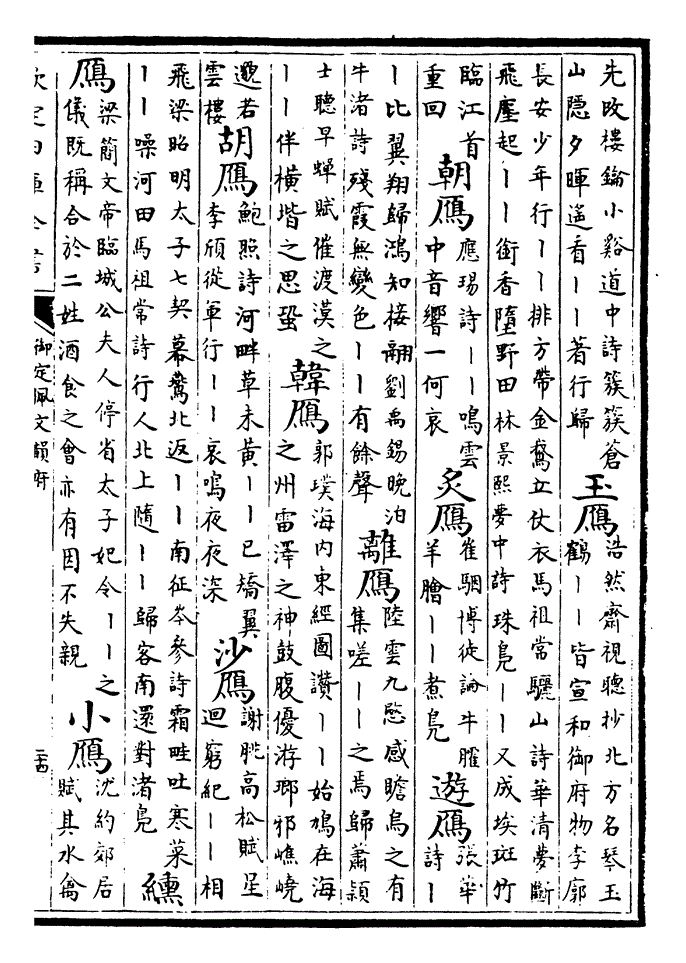 先畋樓鑰小谿道中詩簇簇蒼
山隱夕暉遙看丨丨著行歸
玉鴈
浩然齋視聽抄北方名琴玉
鶴丨丨皆宣和御府物李廓
長安少年行丨丨排方帶金鷔立仗衣馬祖常驪山詩華清夢斷
飛塵起丨丨銜香墮野田林景熙夢中詩珠鳧丨丨又成埃斑竹
臨江首
重回
朝鴈
應瑒詩丨丨鳴雲
中音響一何哀
炙鴈
崔駰博徒論牛臛
羊膾丨丨煮鳧
遊鴈
張華
詩丨
丨比翼翔歸鴻知接翮劉禹錫晚泊
牛渚詩殘霞無變色丨丨有餘聲
離鴈
陸雲九愍感瞻烏之有
集嗟丨丨之焉歸蕭頴
士聽早蟬賦催渡漠之
丨丨伴橫堦之思蛩
韓鴈
郭璞海内東經圖讚丨丨始鳩在海
之州雷澤之神鼓腹優游瑯邪嶕嶢
邈若
雲樓
胡鴈
鮑照詩河畔草未黄丨丨已矯翼
李頎從軍行丨丨哀鳴夜夜深
沙鴈
謝朓高松賦星
迴窮紀丨丨相
飛梁昭明太子七契幕鶩北返丨丨南征岑參詩霜畦吐寒菜
丨丨噪河田馬祖常詩行人北上隨丨丨歸客南還對渚鳧
纁
鴈
梁簡文帝臨城公夫人停省太子妃令丨丨之
儀既稱合於二姓酒食之會亦有因不失親
小鴈
沈約郊居
賦其水禽
欽定四庫全書
御定佩文韻府